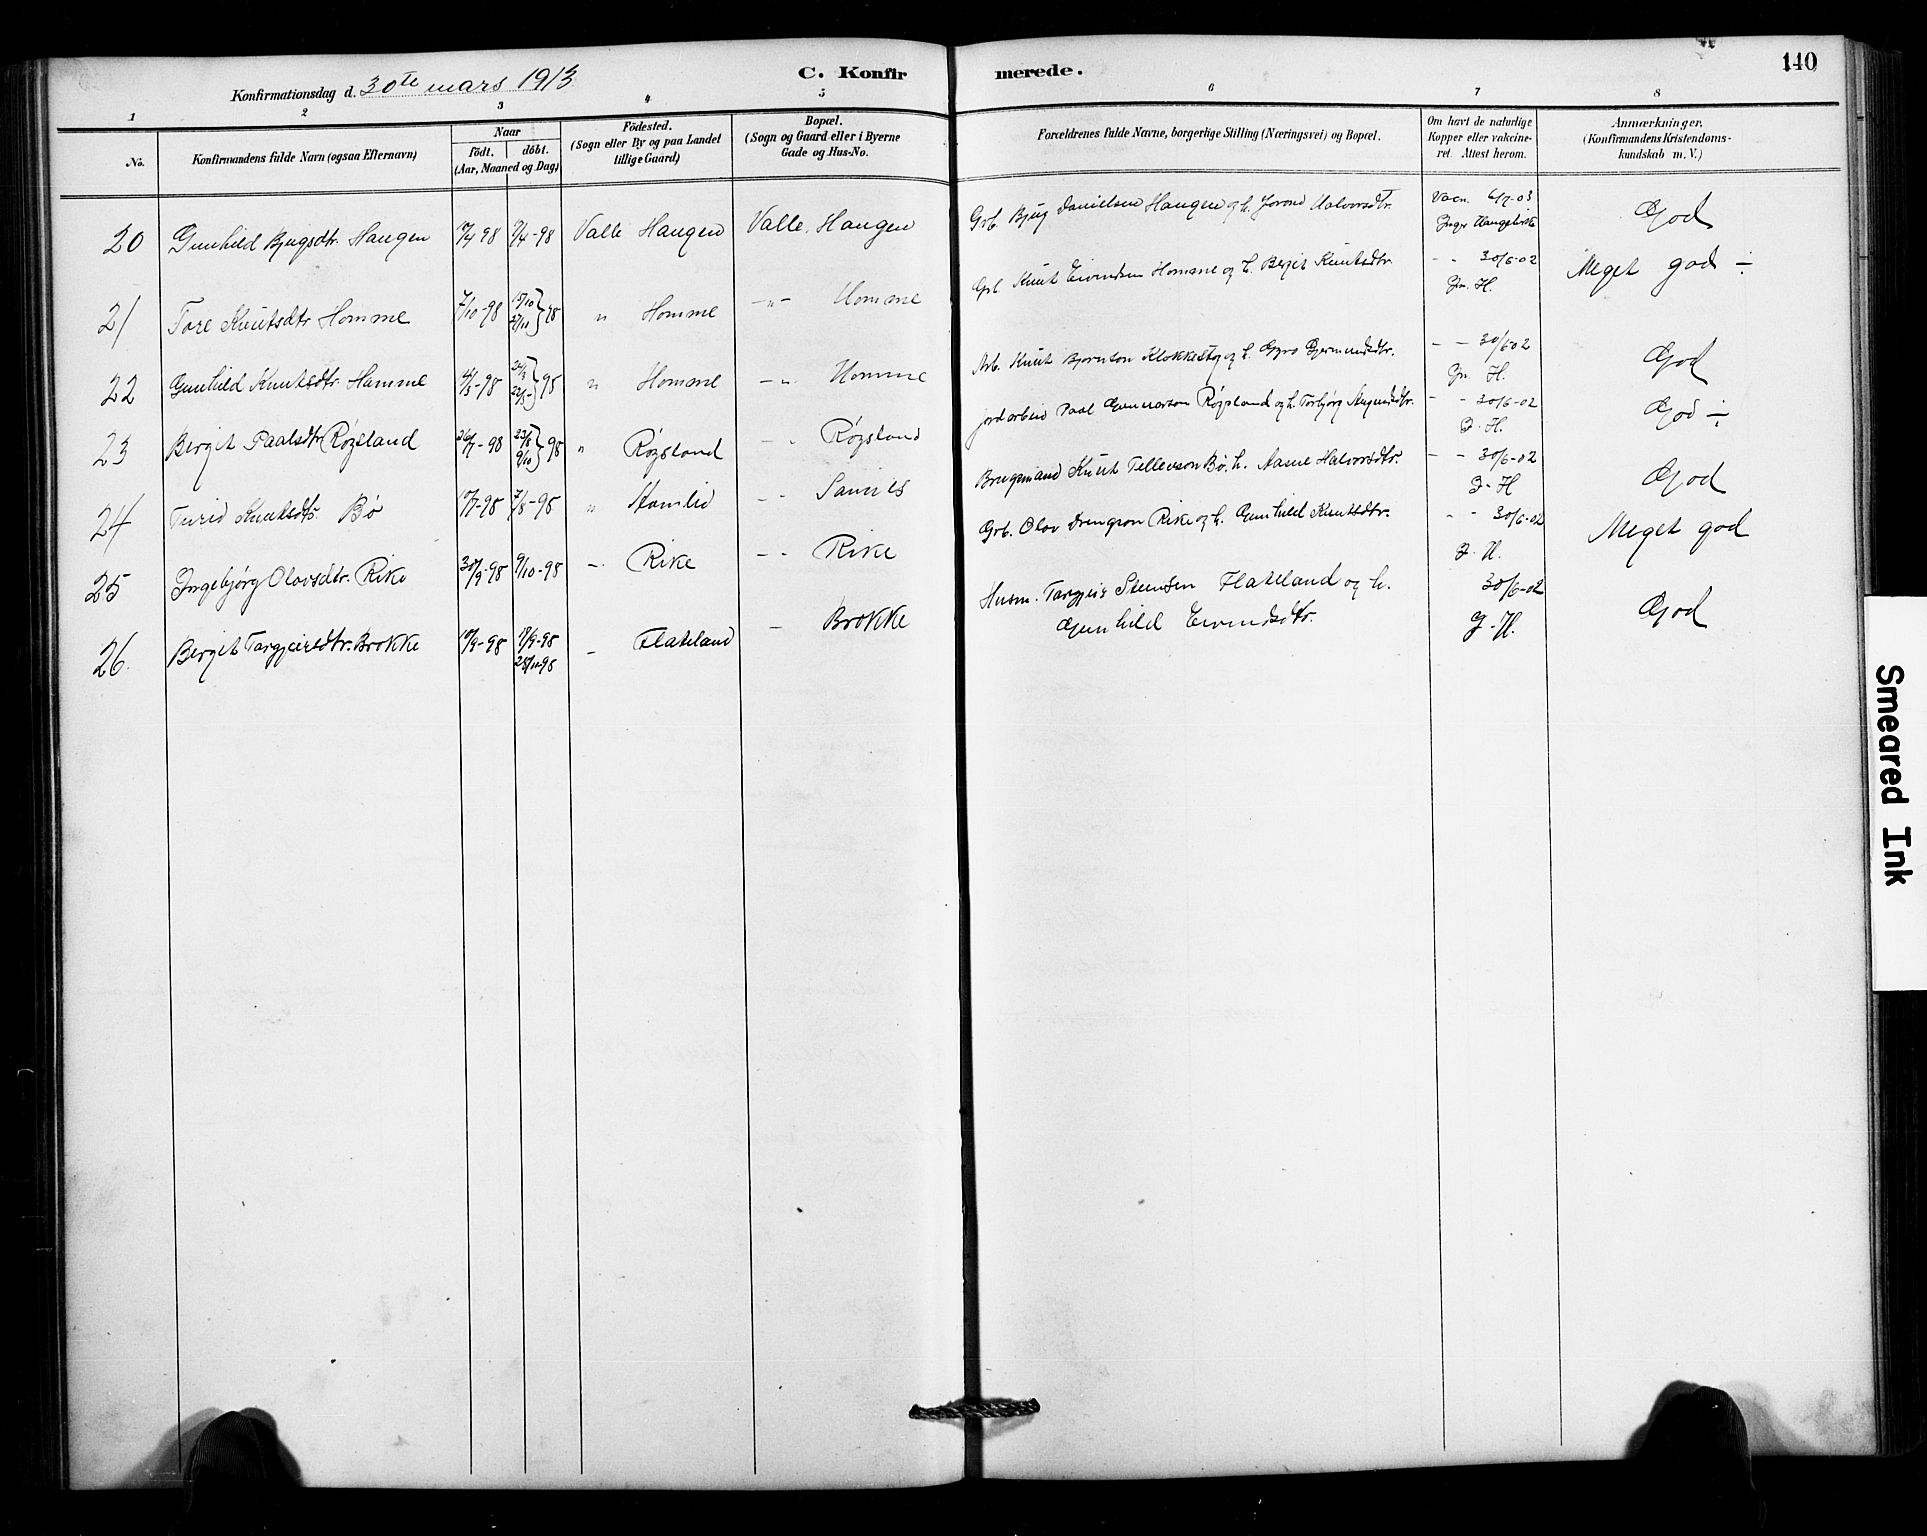 140
C. Konfirmerede.
Konfirmationsdag d. 30te mars 1913
1 2 3 4 5 6 7 8
No. Konfirmandens fulde Navn (ogsaa Efternavn) Naar födt. döbt. (Aar, Maaned og Dag) Födested. (Sogn eller By og paa Landet tillige Gaard) Bopæl. (Sogn og Gaard eller i Byerne Gade og Hus-No. Forældrenes fulde Navne, borgerlige Stilling (Næringsvei) og Bopæl. Om havt de naturlige Kopper eller vakcineret. Attest herom. Anmærkninger. (Konfirmandens Kristendomskundskab m. V.)
20 Gunhild Bjugsdtr. Haugen 98 /4-98 Valle Haugen Valle, Haugen Grb. Bjug Danielsen Haugen og h. Jorond Halvorsdtr. Vacn. 6/7-03 God
21 Tore Knutsdtr Homme 7/10-98 98 " Homme -"- Homme Grb. Knut Eivindsen Homme og h. Bergit Knutsdtr. - - 30/6-02 H. Meget god ÷
22 Gunhild Knutsdtr. Homme 4/3-98 98 " Homme -"- Homme Arb. Knut Bjørnson Klokkestøg og h. Gyro Gjermundsdtr. - - 30/6 02 H. God
23 Bergit Paalsdtr Røysland 26/7-98 98 " Røysland - " Røysland jordarbeid Paal Gunnarson Røysland og h. Torbjørg Augundsdtr. - - 30/6-02 J. H. God ÷
24 Turid Knutsdtr. Bø 10/7-98 7/8-98 " Homlid - - Sannes Brugsmand Knut Tellevson Bø, h. Aasne Halvorsdtr. - - 30/6-02 J-H God
25 Ingebjørg Olovsdtr. Rike 30/9-98 9/10-98 -. Rike - - Rike Grb. Olov Drengson Rike og h. Gunhild Knutsdtr. - - 30/6-02 J. H. Meget god
26. Bergit Targjeirsdtr. Brokke 10/9-98 18/9-98 28/11-98 - Flateland - Brokke Husm. Targjeis Steinsen Flateland og h. Gunhild Eivindsdtr. 30/6-02 J-H. God
Smeared Ink